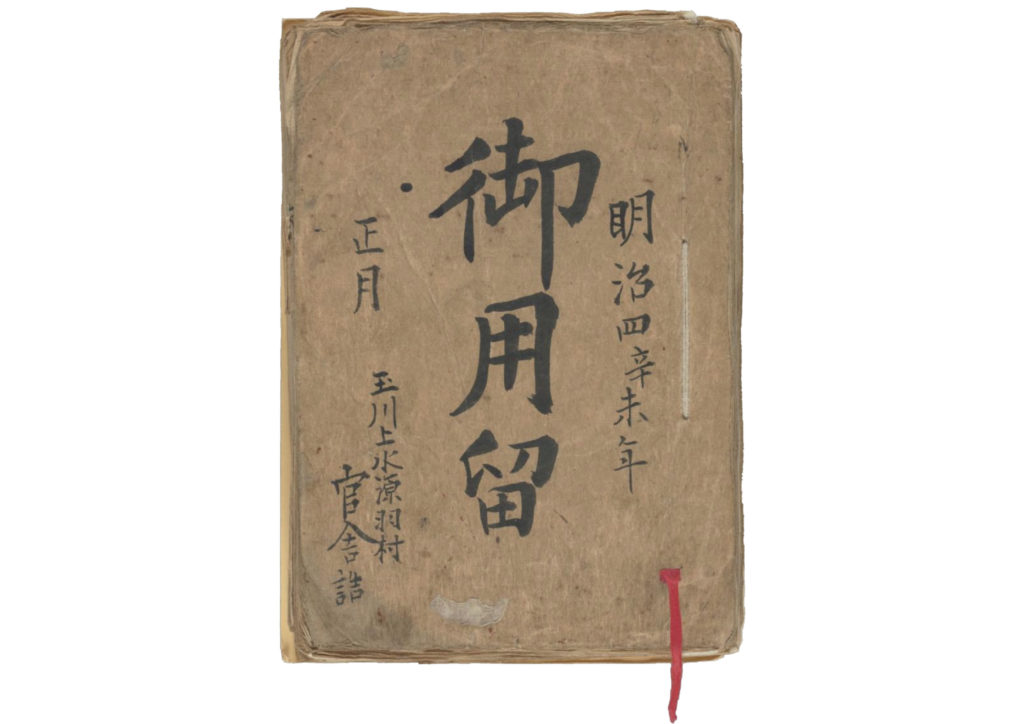 明治四辛未年
御用留
正月
玉川上水源羽村
官舎詰